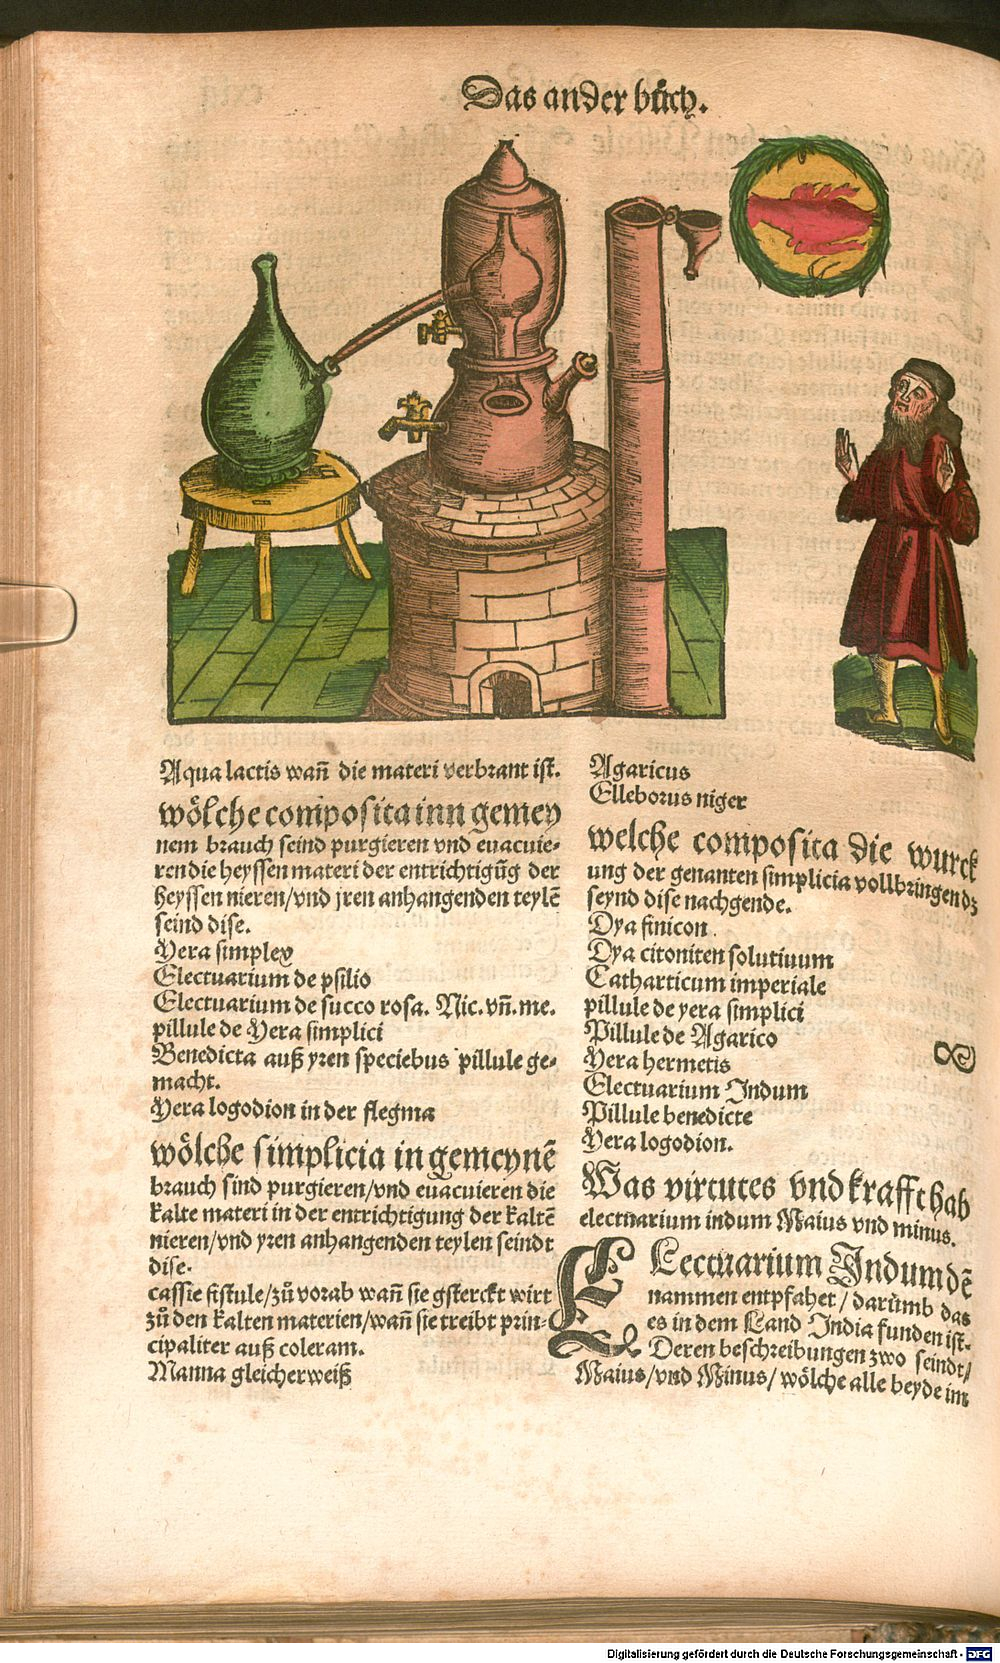 Das ander bůch.
Aqua lactis wañ die materi verbrant ist.
wölche composita inn gemey
nem brauch seind purgieren vnd euacuie-
ren die heyssen materi der entrichtigũg der
heyssen nieren/vnd jren anhangenden teylẽ
seind dise.
Yera simplex
Electuarium de psilio
Electuarium de succo rosa. Nic. vñ. me.
pillule de Yera simplici
Benedicta auß yren speciebus pillule ge-
macht.
Yera logodion in der flegma
wölche simplicia in gemeynẽ
brauch sind purgieren/vnd euacuieren die
kalte materi in der entrichtigung der kaltẽ
nieren/vnd yren anhangenden teylen seindt
dise.
cassie fistule/zů vorab wañ sie gsterckt wirt
zů den kalten materien/wañ sie treibt prin-
cipaliter auß coleram.
Manna gleicherweiß
Agaricus
Elleborus niger
welche composita die wurck
ung der genanten simplicia vollbringen dz
seynd dise nachgende.
Dya finicon.
Dya citoniten solutiuum
Catharticum imperiale
pillule de yera simplici
Pillule de Agarico
Yera hermetis
Electuarium Indum
Pillule benedicte
Yera logodion.
Was virtutes vnd krafft hab
electuarium indum Maius vnd minus.
ELectuarium Indum dẽ
nammen entpfahet/darumb das
es in dem Land India funden ist.
Deren beschreibungen zwo seindt/
Maius/vnd Minus/wölche alle beyde im
Digitalisierung gefördert durch die Deutsche Forschungsgemeinschaft - DFG